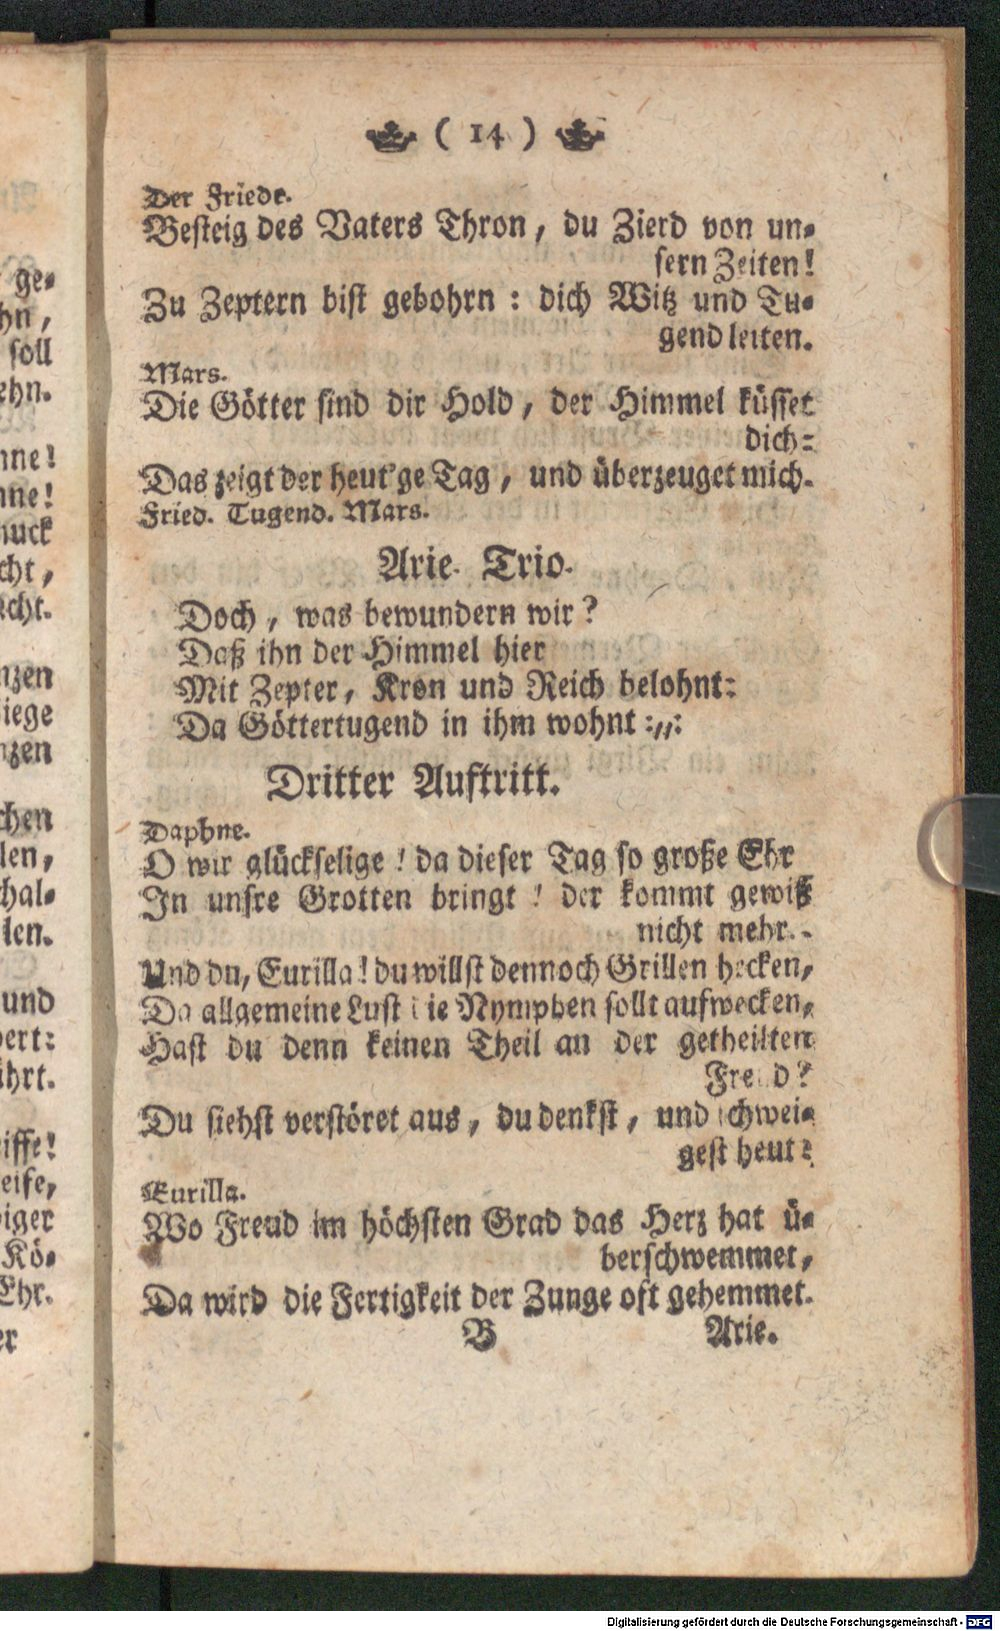 ( 14 )
Der Friede.
Besteig des Vaters Thron, du Zierd von un-
sern Zeiten!
Zu Zeptern bist gebohrn: dich Witz und Tu-
gend leiten.
Mars.
Die Götter sind dir Hold, der Himmel küsset
dich:
Das zeigt der heut'ge Tag, und überzeuget mich.
Fried. Tugend. Mars.
Arie. Trio.
Doch, was bewundern wir?
Daß ihn der Himmel hier
Mit Zepter, Kron und Reich belohnt:
Da Göttertugend in ihm wohnt :,,:
Dritter Auftritt.
Daphne.
O wir glückselige! da dieser Tag so große Ehr
In unsre Grotten bringt! der kommt gewiß
nicht mehr.
Und du, Eurilla! du willst dennoch Grillen hecken,
Da allgemeine Lust die Nymphen sollt aufwecken,
Hast du denn keinen Theil an der getheilten
Freud?
Du siehst verstöret aus, du denkst, und schwei-
gest heut?
Eurilla.
Wo Freud im höchsten Grad das Herz hat ü-
berschwemmet,
Da wird die Fertigkeit der Zunge oft gehemmet.
B Arie.
ge-
hn,
soll
ehn.
nne!
nne!
muck
cht,
cht.
nzen
iege
nzen
chen
len,
hal-
len.
und
ert:
ührt.
iffe!
eife,
iger
Kö-
Ehr.
er
Digitalisierung gefördert durch die Deutsche Forschungsgemeinschaft - DFG